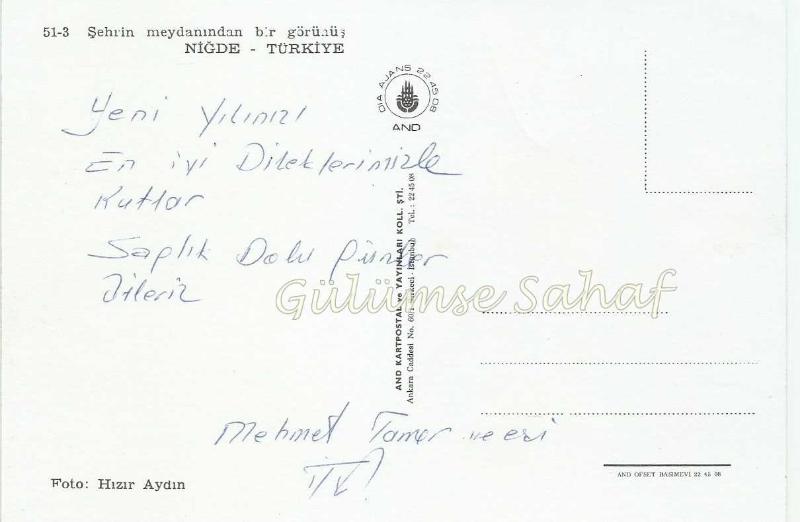 51-3 Şehrin meydanından bir görünüş
NİĞDE - TÜRKİYE
DIA AJANS 22 45 08
AND
Yeni Yılınızı
En iyi Dileklerimizle
Kutlar
Sağlık Dolu Günler
Dileriz
AND KARTPOSTAL ve YAYINLARI KOLL. ŞTİ.
Ankara Caddesi No. 60/ Sirkeci - İstanbul Tel.: 22 45 08
Gülümse Sahaf
Mehmet Tamer ve eşi
Foto: Hızır Aydın
AND OFSET BASIMEVİ 22 45 08